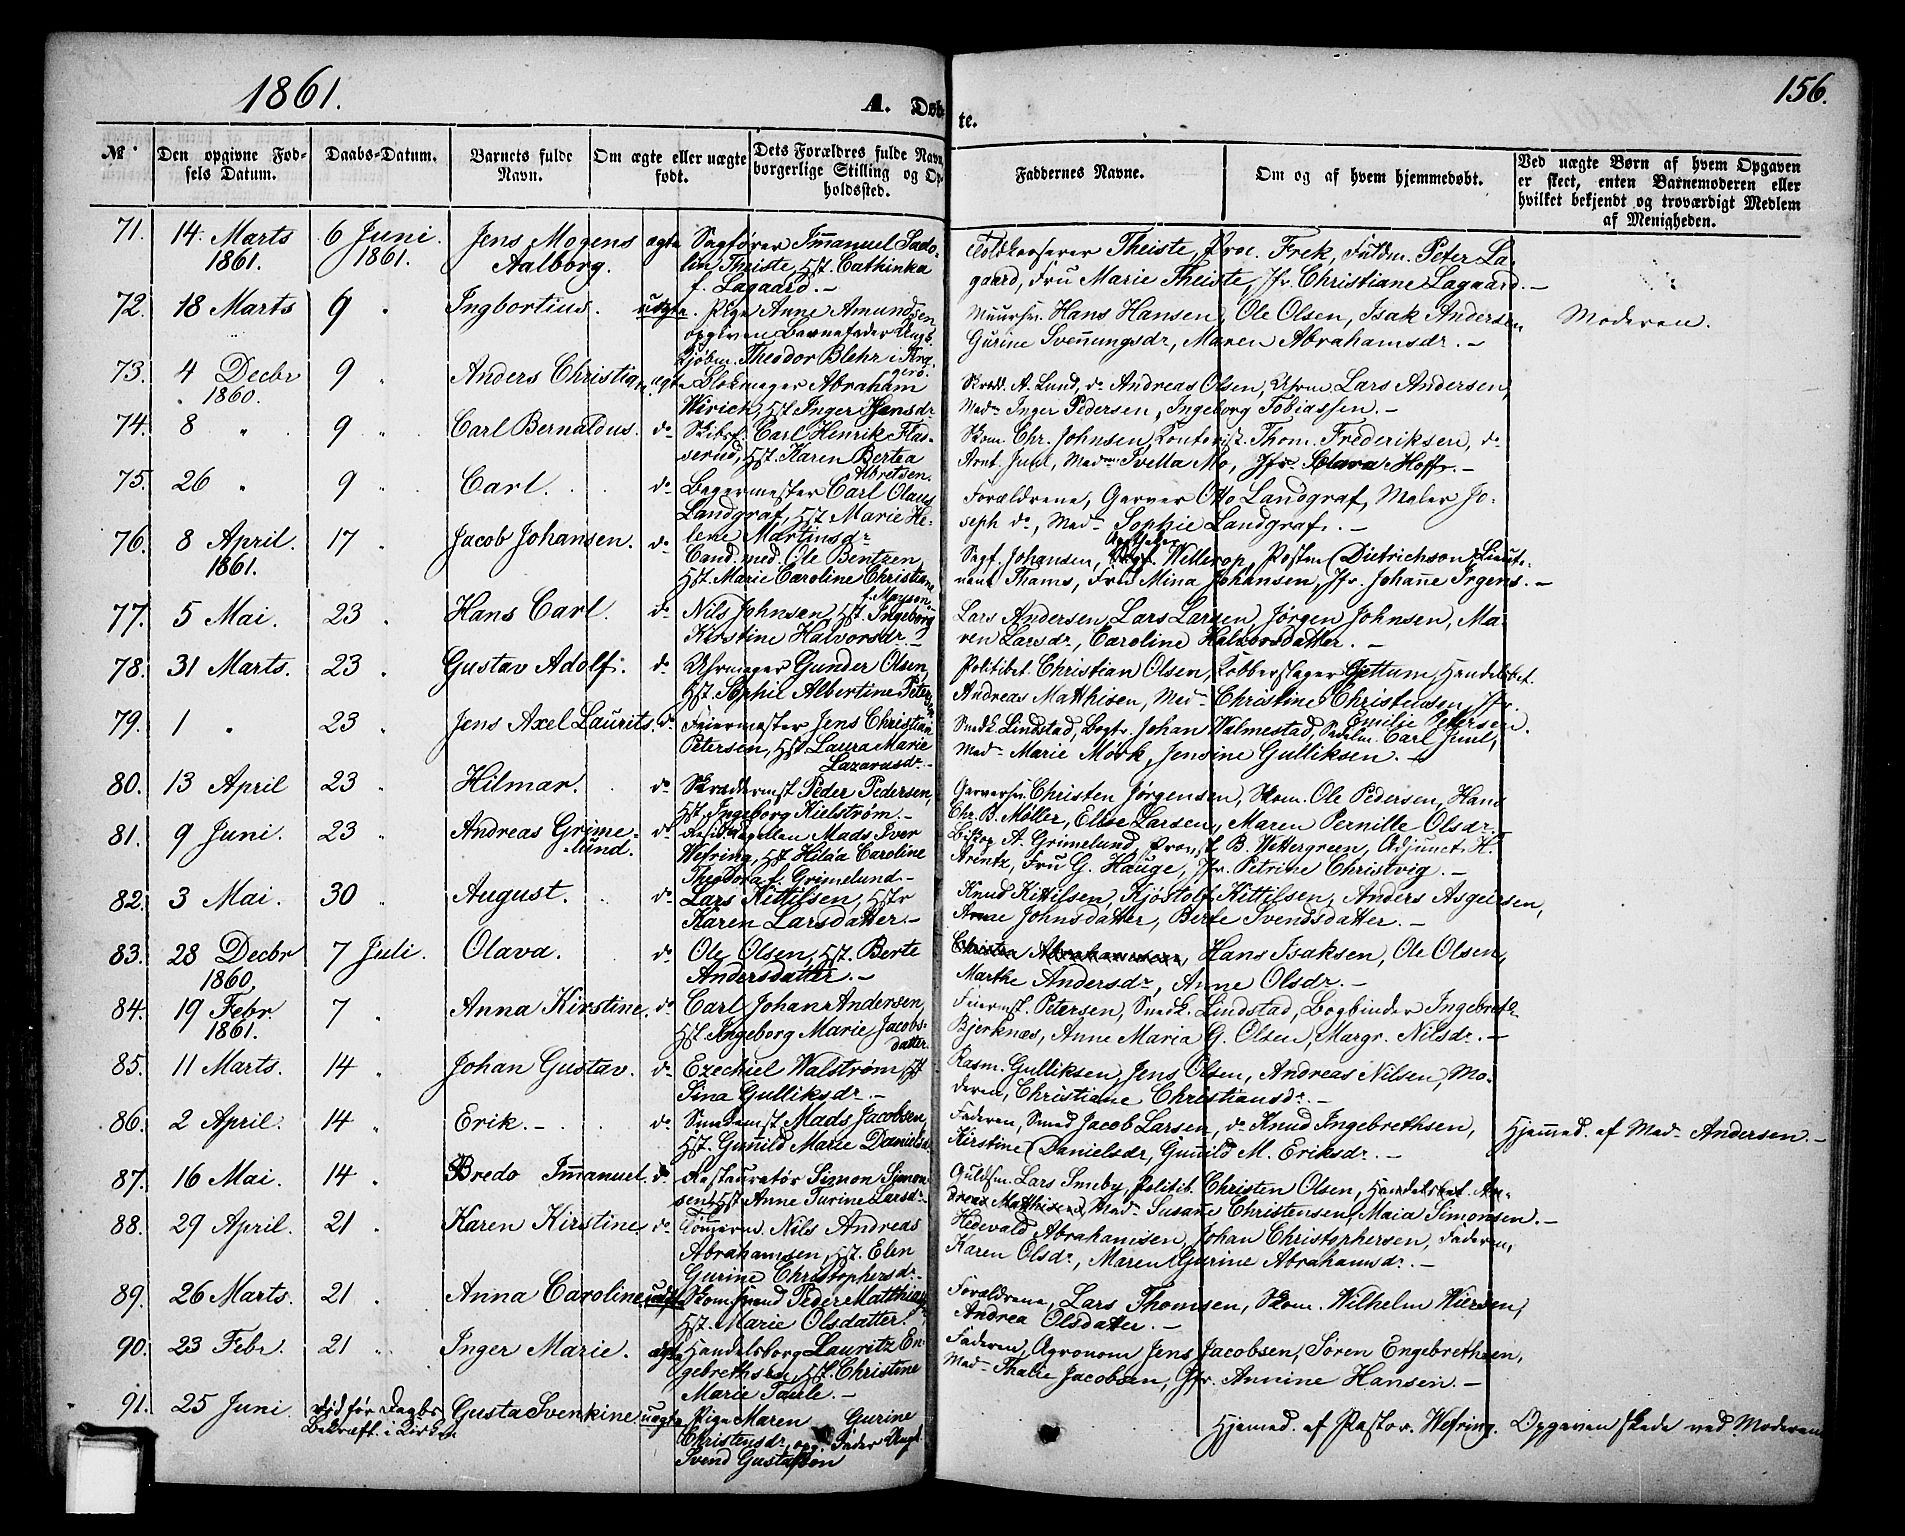 1861.
A. Døb-
te.
156.
№
Den opgivne Fød-
sels Datum.
Daabs-Datum.
Barnets fulde
Navn.
Om ægte eller uægte
født.
Dets Forældres fulde Navn,
borgerlige Stilling og Op-
holdssted.
Faddernes Navne.
Om og af hvem hjemmedøbt.
Ved uægte Børn af hvem Opgaven
er skeet, enten Barnemoderen eller
hvilket bekjendt og troværdigt Medlem
af Menigheden.
71. 14. Marts 1861. 6 Juni. 1861. Jens Mogens Aalborg. ægte
Sagfører Immanuel Sado-
lin Theiste, Hst. Cathinka
f. Lagaard.
Toldkasserer Theiste, Proc. Frek, Fuldm. Peter La-
gaard, Fru Marie Theiste, Jfr. Christiane Lagaard.
72. 18 Marts 9 " Ingbortius. uægte.
Pige Anne Amundsen,
opgiven Barnefader Ungk.
Kjøbm. Theodor Blehr i Kra-
gerø.
Muursv. Hans Hansen, Ole Olsen, Isak Andersen
Gurine Svennungsdr, Maren Abrahamsdr.
Moderen.
73. 4 Decbr 1860. 9 " Anders Christian, ægte
Blokmager Abraham
Wirick, Hst. Inger Hansdr
Skræd. A. Lund, do Andreas Olsen, Uhrm Lars Andersen,
Mad. Inger Pedersen, Ingeborg Tobiassen.
74. 8 " 9 " Carl Bernaldus. do
Skibsf. Carl Henrik Flas-
serud, Hst. Karen Bertea
Albretsen.
Skom. Chr. Johnsen, Kontorist. Thom. Frederiksen, do
Arnt. Juul, Mad. Svella Mo, Jfr. Clara Hoff.
75. 26 " 9 " Carl. do
Bagermester Carl Olaus
Landgraf, Hst. Marie He-
lene Martinsdr
Forældrene, Garver Otto Landgraf, Maler Jo-
seph do, Mad. Sophie Landgraf.
76. 8 April. 1861. 17 " Jacob Johansen. do
Cand. med. Ole Bentzen
Hst. Marie Caroline Christiane
f. Mayson.
Apotheker
Sagf. Johansen, Willerop, Postm Dietrichson, Lieute-
nant Thams, Fru Mina Johansen, Jfr. Johanne Irgens.
77. 5 Mai. 23 " Hans Carl. do
Nils Johnsen, Hst. Ingeborg
Kirstine Halvorsdr
Lars Andersen, Lars Larsen, Jørgen Johnsen, Ma-
ren Larsdr, Caroline Halvorsdatter.
78. 31 Marts. 23 " Gustav Adolf. do
Uhrmager Gunder Olsen,
Hst. Sophie Albertine Peter-
sen
Politibet. Christian Olsen, Kobberslager Gjettum, Handelsbet.
Andreas Mathisen, Mad. Christine Christensen, Jfr.
Emilie Petersen.
79. 1 " 23 " Jens Axel Laurits. do
Feiermester Jens Christian
Petersen, Hst. Laura Marie
Lazarusdr.
Smedk. Lindstad, Bogtr. Johan Walmestad, Sadelm. Carl Juul,
Mad. Marie Mørk, Jensine Gulliksen.
80. 13 April 23 " Hilmar. do
Skrædermst Peder Pedersen,
Hst. Ingeborg Kielstrøm.
Garversv. Christen Jørgensen, Skom. Ole Pedersen, Hans
Chr. B. Møller, Elise Larsen, Maren Pernille Olsdr.
81. 9 Juni. 23 " Andreas Grime-
lund. do
Resid. Capellan Mads Iver
Wefring, Hst. Hilda Caroline
Theodora f. Grimelund
Biskop A. Grimelund, Provst B. Wettergreen, Adjunct H.
Arentz, Fru G. Hauge, Jfr. Petrine Christvig.
82. 3 Mai. 30 " August. do
Lars Kittilsen, Hstr
Karen Larsdatter.
Knud Kittilsen, Kjøstolf Kittilsen, Anders Asgeirsen,
Anne Johnsdatter, Berte Svendsdatter.
83. 28 Decbr 1860. 7 Juli. Olava. do
Ole Olsen, Hst. Berte
Andersdatter.
Christen Abrahamsen, Hans Isaksen, Ole Olsen,
Marthe Andersdr, Anne Olsdr.
84. 19 Febr. 1861. 7 " Anna Kirstine. do
Carl Johan Andersen,
Hst. Ingeborg Marie Jacobs-
datter.
Feiermst. Petersen, Smedk. Lindstad, Bogbinder Ingebret
Bjerknæs, Anne Maria G. Olsen, Margr. Nilsdr.
85. 11 Marts. 14 " Johan Gustav. do
Ezechiel Walstrøm, Hst
Sina Gulliksdr.
Rasm. Gulliksen, Jens Olsen, Andreas Nilsen, Mo-
deren, Christiane Christiansdr.
86. 2 April. 14 " Erik. do
Smedemst Mads Jacobsen,
Hst. Gunnild Marie Danielsdr
Faderen, Smed Jacob Larsen, do Knud Ingebrethsen,
Kirstine Danielsdr, Gunnild M. Eriksdr.
Hjemmed. af Mad. Andersen.
87. 16 Mai. 14 " Bredo Immanuel. do
Restauratør Simon Simon-
sen, Hst Anne Turine Larsdr.
Guldsm. Lars Smeby, Politib. Christen Olsen, Handelsbet. An-
dreas Matthisen, Mad. Susane Christensen, Maia Simonsen.
88. 29 April. 21 " Karen Kirstine. do
Tømmerm. Nils Andreas
Abrahamsen, Hst. Elen
Gurine Christophersdr.
Hedevald Abrahamsen, Johan Christophersen, Faderen,
Karen Olsdr, Maren Gurine Abrahamsdr.
89. 26 Marts. 21 " Anna Caroline. uægte
Skom.svend Peder Matthias
Hst. Marie Olsdatter.
Forældrene, Lars Thomsen, Skom. Wilhelm Wiersen,
Andrea Olsdatter.
90. 23 Febr. 21 " Inger Marie. ægte
Handelsborg Lauritz En-
gebrethsen, Hst. Christine
Marie Taule.
Faderen, Agronom Jens Jacobsen, Søren Engebrethsen,
Mad. Thalie Jacobsen, Jfr. Annine Hansen.
91. 25 Juni. død før Daabs
Bekræft. i Kirken. Gusta Svenkine. uægte
Pige Maren Gurine
Christensdr, opg. Fader Ungk.
Svend Gustafson
Hjemmed. af Pastor Wefring. Opgaven skede ved Moderen